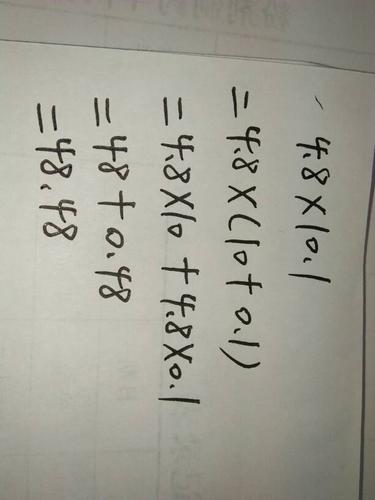 4.8×10.1
=4.8×(10+0.1)
=4.8×10+4.8×0.1
=48+0.48
=48.48